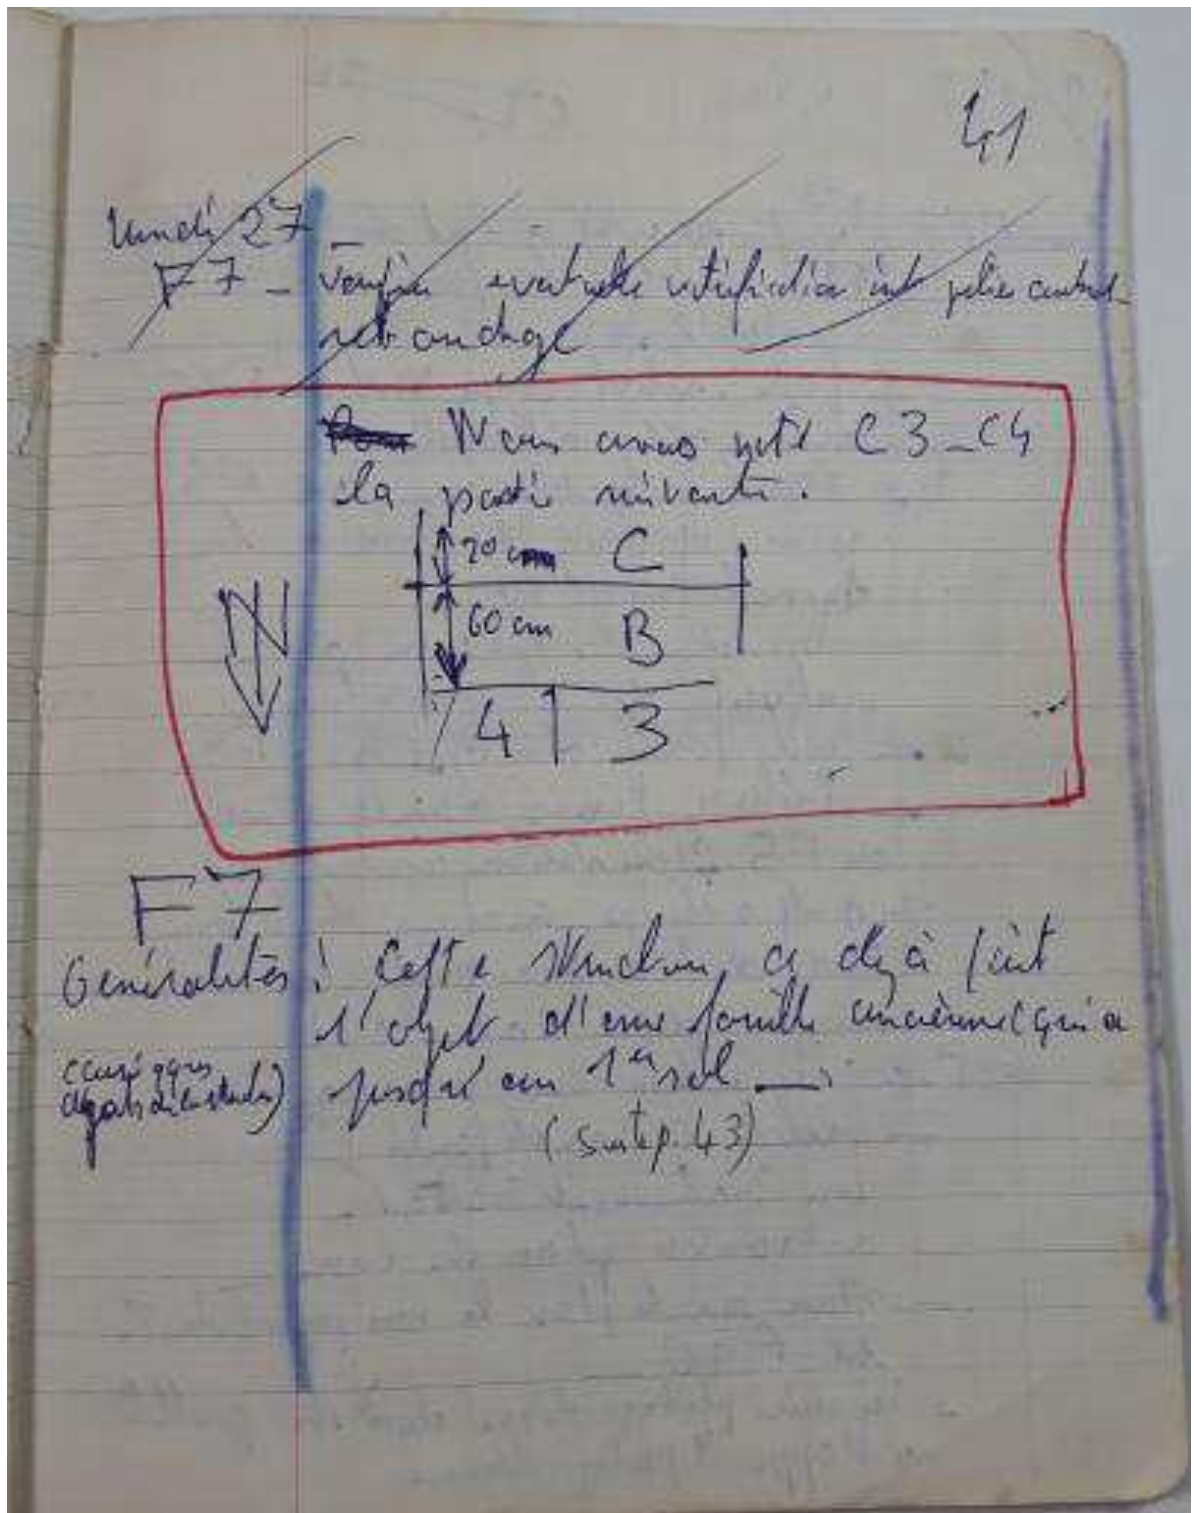 41
lundi 27
F7 - Vérifier eventuelle vitrification int
rebandage.
Nous avons noté C3_C4
la partie suivante.
20 cm C
60 cm B
N
4 3
F7
Généralités : Cette structure a déjà fait
l'objet d'une fouille ancienne (qui a
jusqu'au 1er sol
(suite p. 43)